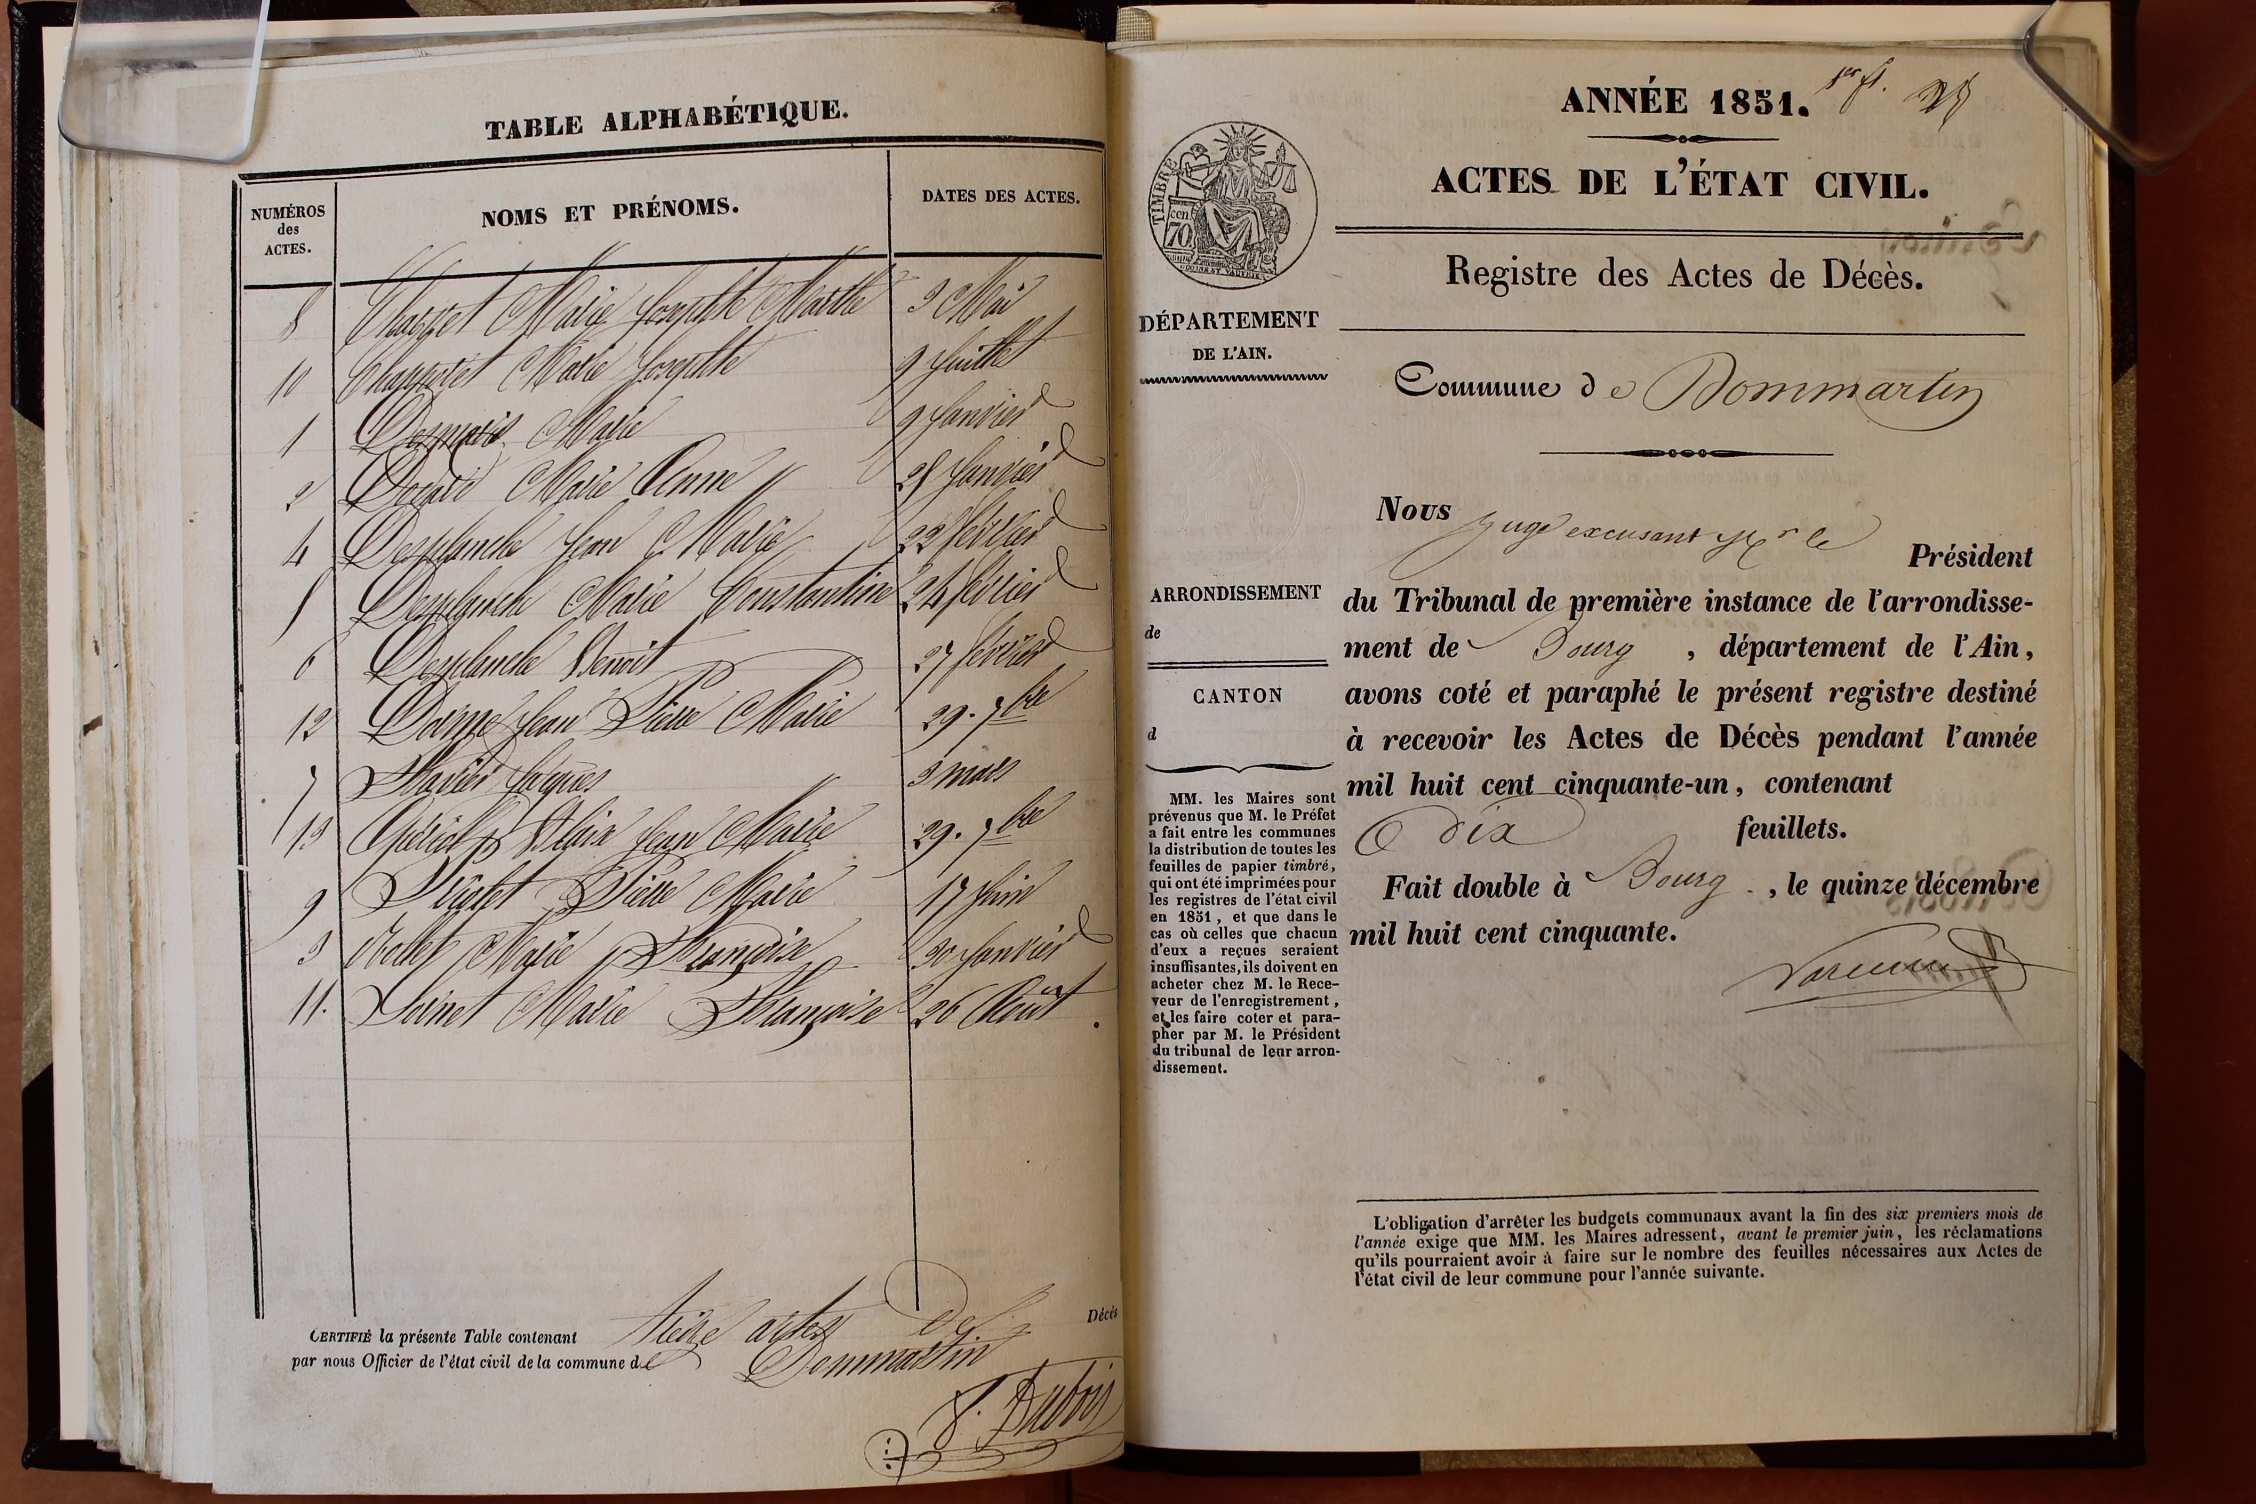 TABLE ALPHABÉTIQUE.
NUMÉROS des ACTES.
NOMS ET PRÉNOMS.
DATES DES ACTES.
8 Marie Josephte Marthe 3 Mai
10 Marie Josephte 9 Juillet
1 Desmaris Marie 9 Janvier
2 Marie Anne 28 Janvier
4 Desplanche Jean Marie 22 février
5 Desplanche Marie Constantine 24 février
6 Desplanche Benoit 27 février
12 Jean Pierre Marie 29. 7bre
7 Jacques 3 mars
13 Jean Marie 29. 7bre
9 Pierre Marie 17 Juin
3 Marie Françoise 30 Janvier
11. Marie Françoise 26 Août
CERTIFIÉ la présente Table contenant treize actes De Décès
par nous Officier de l'état civil de la commune de Dommartin
Dubois
ANNÉE 1851. 1er ft.
ACTES DE L'ÉTAT CIVIL.
Registre des Actes de Décès.
TIMBRE
cen
70
DÉPARTEMENT
DE L'AIN.
Commune de Dommartin
Nous Juge excusant Mr le Président
du Tribunal de première instance de l'arrondisse-
ment de Bourg , département de l'Ain,
avons coté et paraphé le présent registre destiné
à recevoir les Actes de Décès pendant l'année
mil huit cent cinquante-un, contenant
dix feuillets.
Fait double à Bourg , le quinze décembre
mil huit cent cinquante.
ARRONDISSEMENT
de
CANTON
d
MM. les Maires sont
prévenus que M. le Préfet
a fait entre les communes
la distribution de toutes les
feuilles de papier timbré,
qui ont été imprimées pour
les registres de l'état civil
en 1851, et que dans le
cas où celles que chacun
d'eux a reçues seraient
insuffisantes, ils doivent en
acheter chez M. le Rece-
veur de l'enregistrement,
et les faire coter et para-
pher par M. le Président
du tribunal de leur arron-
dissement.
L'obligation d'arrêter les budgets communaux avant la fin des six premiers mois de
l'année exige que MM. les Maires adressent, avant le premier juin, les réclamations
qu'ils pourraient avoir à faire sur le nombre des feuilles nécessaires aux Actes de
l'état civil de leur commune pour l'année suivante.